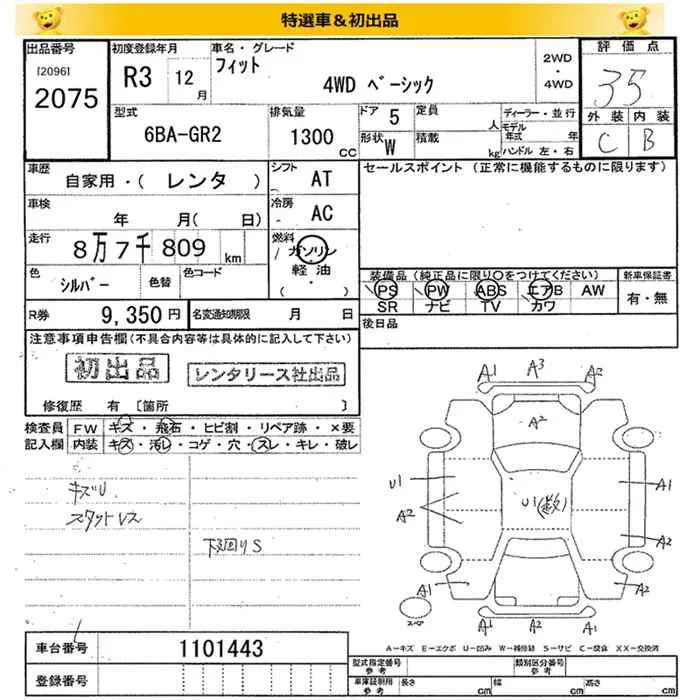 特選車&初出品
出品番号
[2096]
2075
初度登録年月
R3 12月
車名・グレード
フィット
4WD ベーシック
2WD
・
4WD
評価点
3.5
外装 内装
C B
型式
6BA-GR2
排気量
1300
CC
ドア 5
形状 W
定員
人
積載
kg
ディーラー・並行
モデル年式 年
ハンドル 左・右
車歴
自家用・( レンタ )
シフト AT
車検
年 月( 日)
冷房 AC
走行
8万7千809 km
燃料
ガソリン
軽油
( ・ )
色
シルバー
色替
色コード
R券 9,350円
名変通知期限 月 日
セールスポイント (正常に機能するものに限ります)
装備品 (純正品に限り○をつけてください)
PS PW ABS エアB AW
SR ナビ TV カワ
新車保証書
有・無
後日品
注意事項申告欄 (不具合内容等は具体的に記入して下さい)
初出品
レンタリース社出品
修復歴 有 〔箇所 〕
検査員記入欄
FW キズ・飛石・ヒビ割・リペア跡・×要
内装 キズ・汚レ・コゲ・穴・スレ・キレ・破レ
キズU
スタットレス
下回りS
A1 A3 A1
A2
U1
A2
U1(数)
A1
A2
A1 A1
A2 A2
スペア
A-キズ E-エクボ U-凹み W-補修跡 S-サビ C-腐食 XX-交換済
車台番号 1101443
登録番号
型式指定番号 参考
類別区分番号 参考
車庫証明用 参考
長さ cm 幅 cm 高さ cm